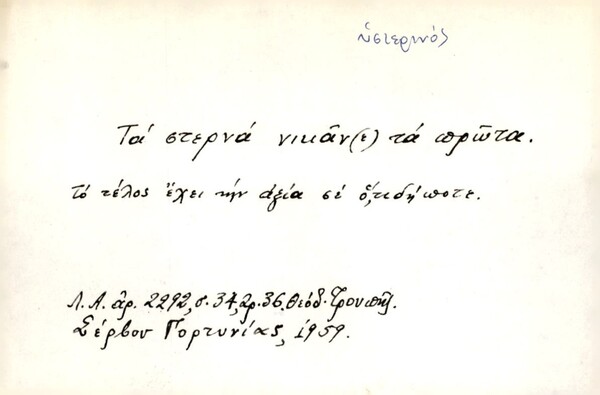 ὑστερινός
Τά στερνά νικᾶν(ε) τά πρῶτα.
τό τέλος ἔχει τήν ἀξία σέ ὅ,τιδήποτε.
Λ.Α. ἀρ. 2292, σ. 34, ἀρ. 36. Θεόδ. Τρουπῆς.
Σέρβου Γορτυνίας, 1959.